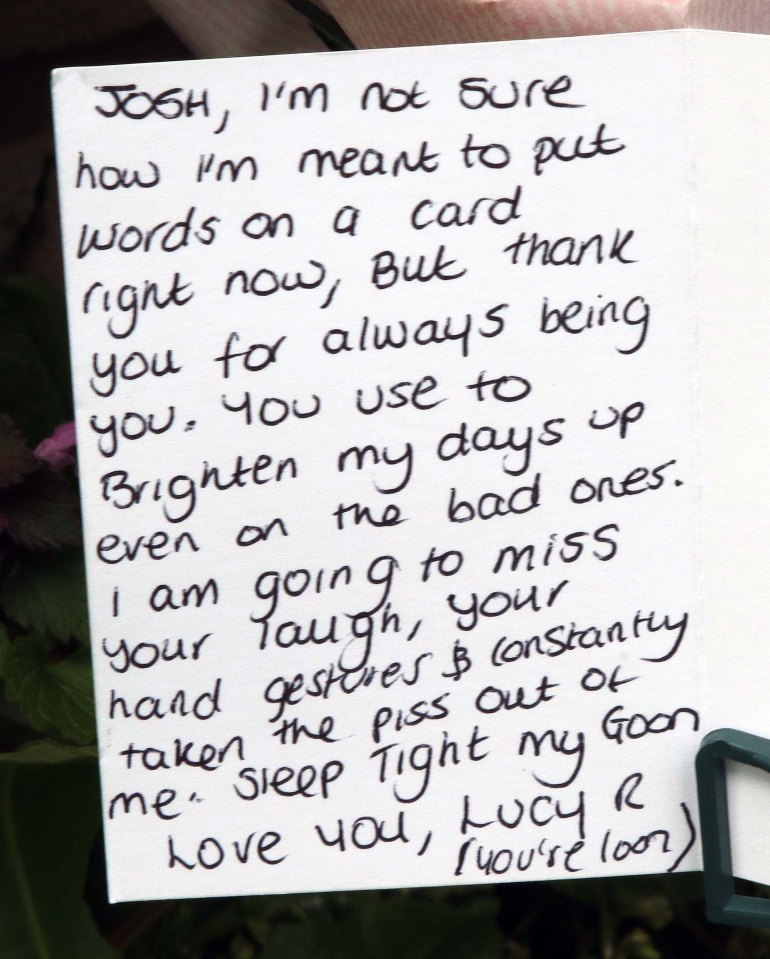 JOSH, I'm not sure
how I'm meant to put
words on a card
right now, But thank
you for always being
you. You use to
Brighten my days up
even on the bad ones.
I am going to miss
your laugh, your
hand gestures & constantly
taken the piss out of
me. Sleep Tight my Goon
Love you, Lucy R
(you're loon)